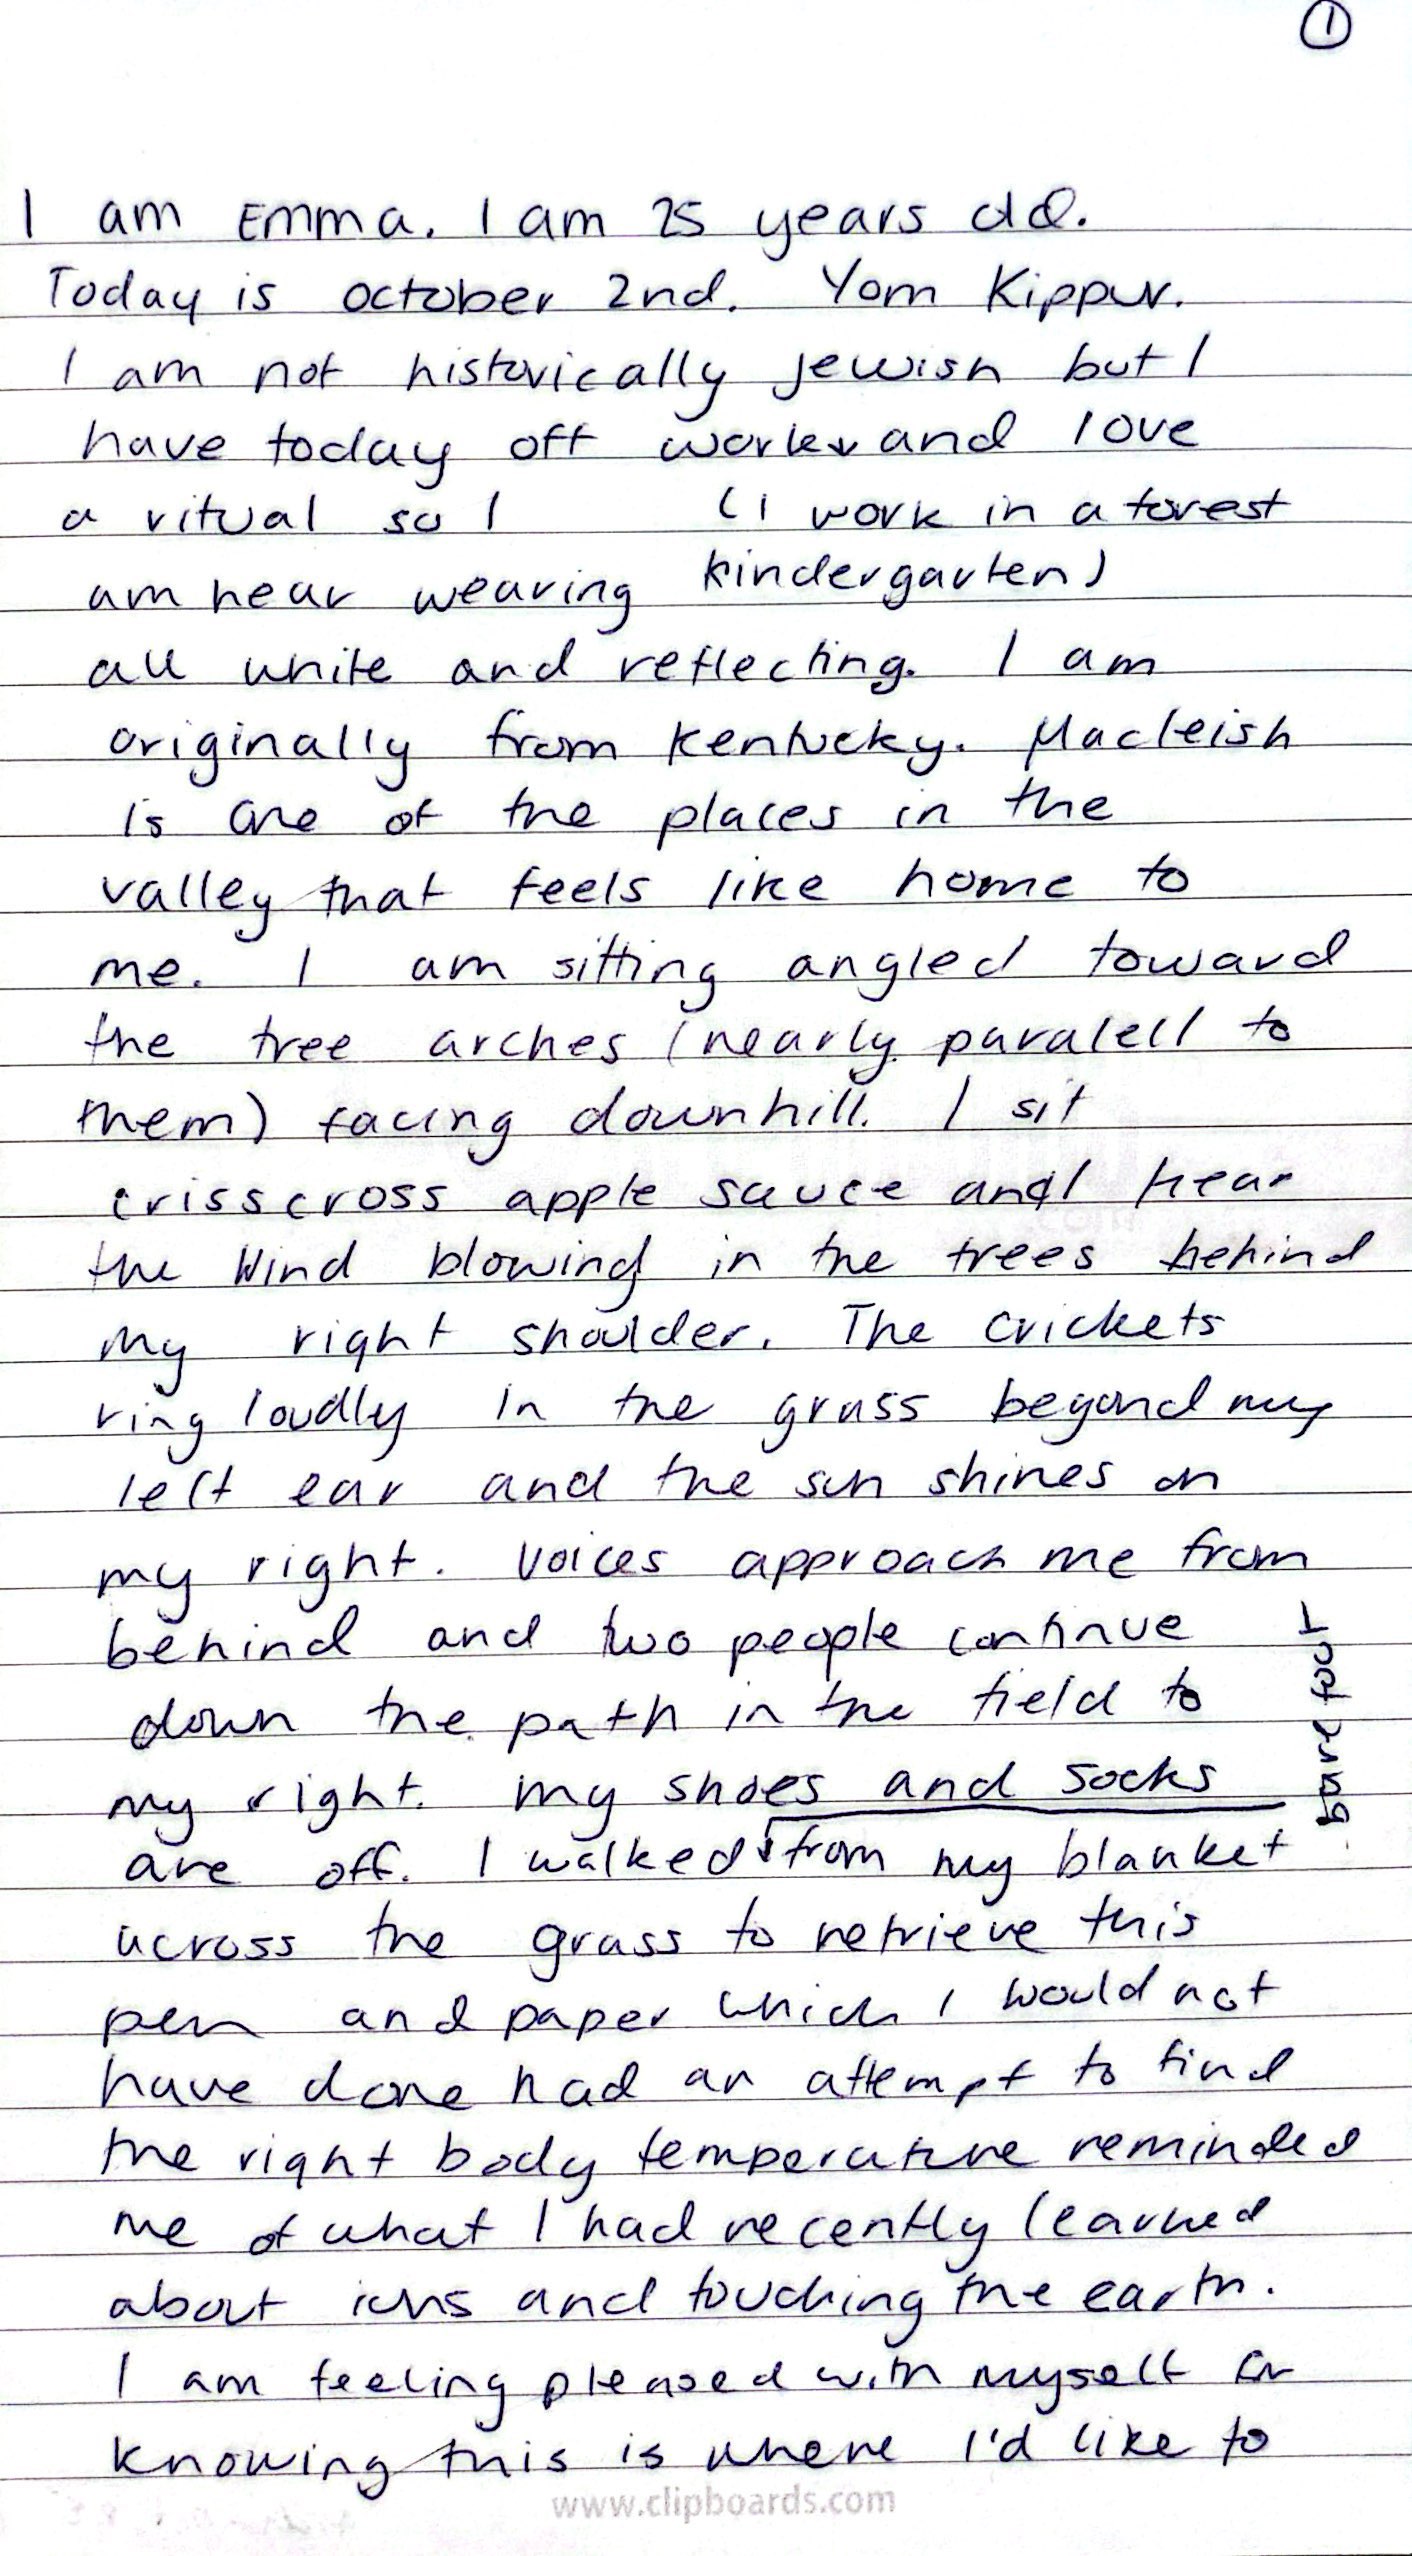 1
I am Emma. I am 25 years old.
Today is october 2nd. Yom Kippur.
I am not historically jewish but I
have today off work and love
a ritual so I (I work in a forest
kindergarten)
am hear wearing
all white and reflecting. I am
originally from Kentucky. Macleish
is one of the places in the
valley that feels like home to
me. I am sitting angled toward
the tree arches (nearly paralell to
them) facing downhill. I sit
crisscross apple sauce and hear
the Wind blowing in the trees behind
my right shoulder. The crickets
ring loudly in the grass beyond my
left ear and the sun shines on
my right. Voices approach me from
behind and two people continue
down the path in the field to
my right. my shoes and socks
bare foot
are off. I walked from my blanket
across the grass to retrieve this
pen and paper which I would not
have done had an attempt to find
the right body temperature reminded
me of what I had recently learned
about ions and touching the earth.
I am feeling pleased with myself for
knowing this is where I'd like to
www.clipboards.com